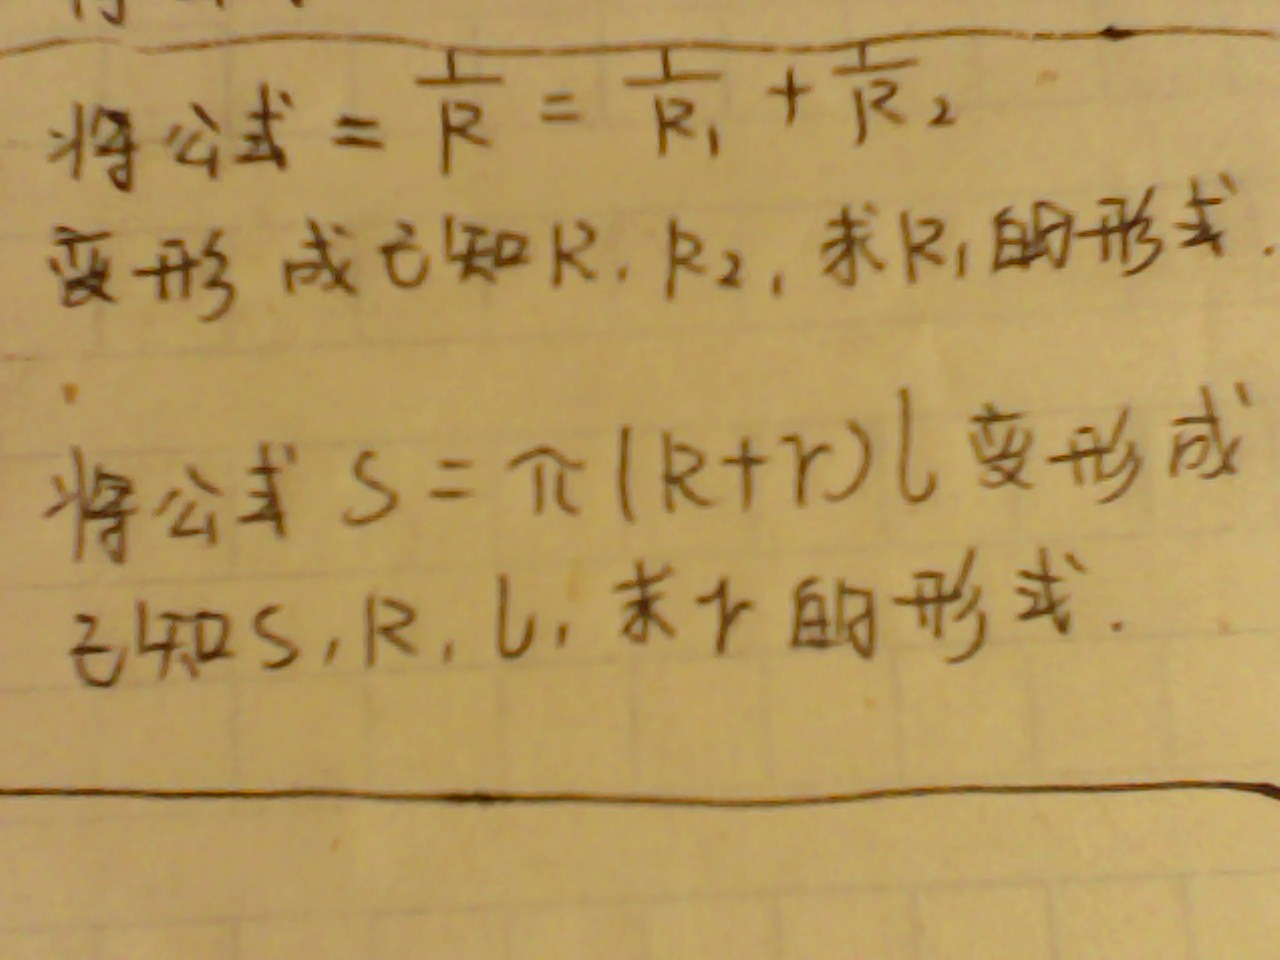 将公式=1/R=1/R₁+1/R₂
变形成已知R,R₂,求R₁的形式.
将公式S=π(R+r)l变形成
已知S,R,l,求r的形式.